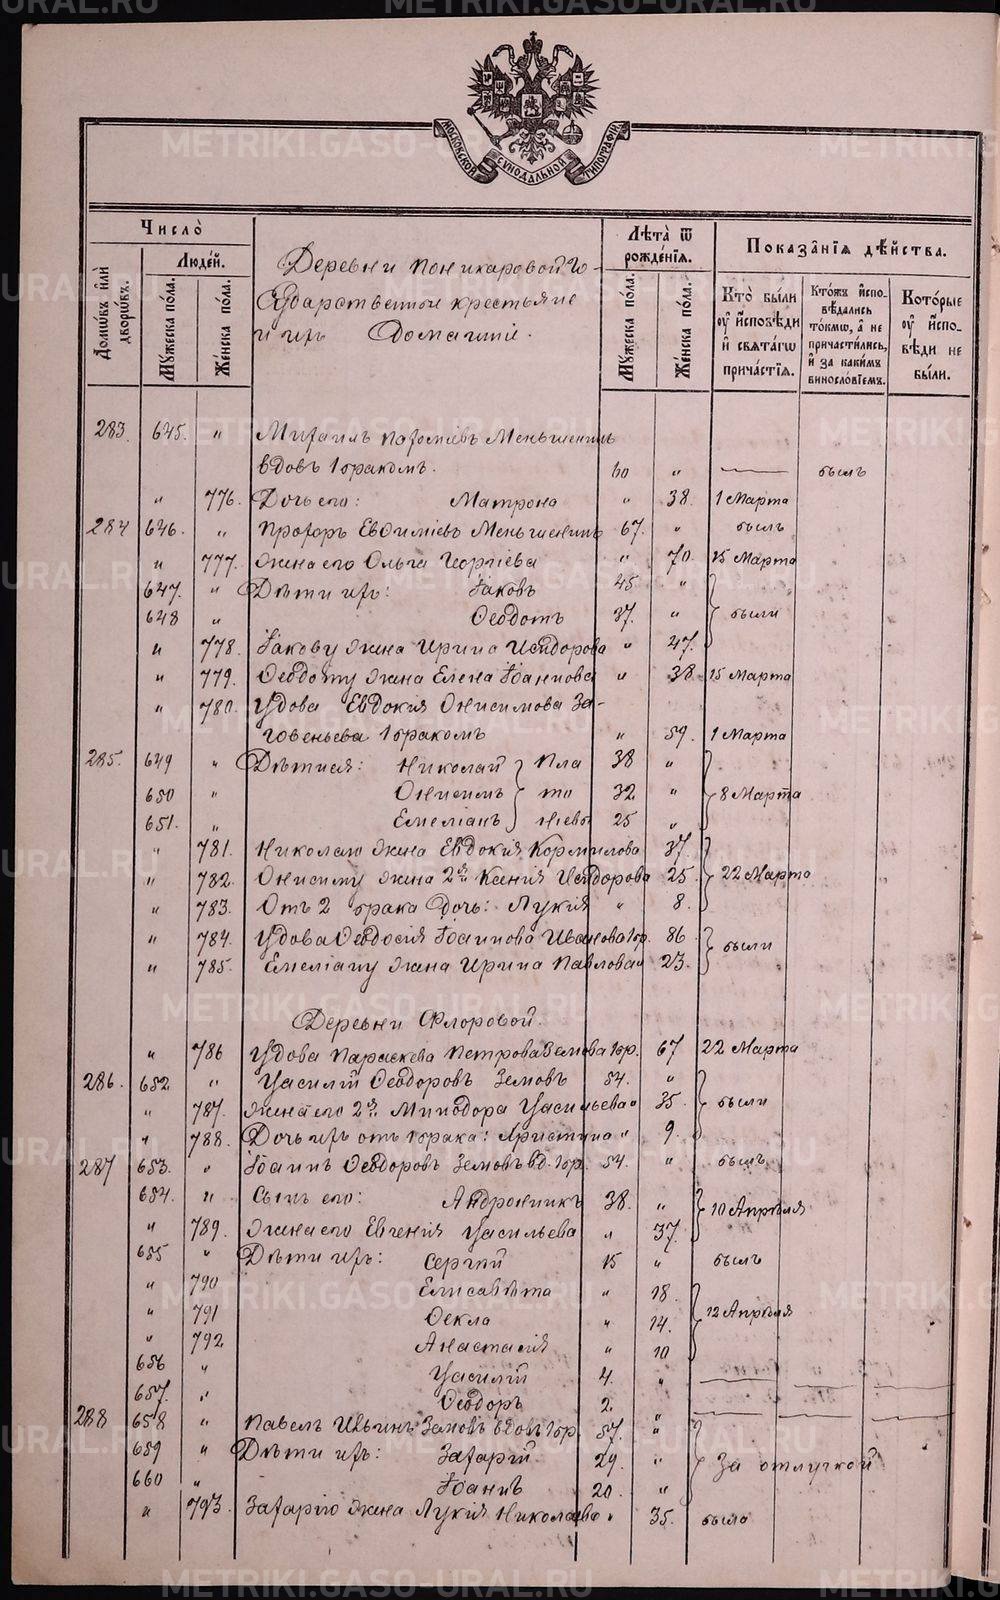 METRIKI.GASO-URAL.RU
МОСКОВСКОЙ СѴНОДАЛЬНОЙ ТИПОГРАФІИ
Число̀
Домѡвъ и҆лѝ дворѡвъ.
Люде́й.
Мꙋжеска по́ла.
Же́нска по́ла.
Деревни Поникаровой Го-
сударственные крестьяне
и ихъ Домашніе.
Лѣта̀ ѿ рожде́нїѧ.
Мꙋжеска по́ла.
Же́нска по́ла.
Показа̑нїѧ дѣ́йства.
Кто̀ бы́ли оу҆ и҆сповѣди и҆ свѧта́гѡ прича́стїѧ.
Кто́жъ и҆спо-вѣдались то́кмѡ, а҆ не причасти́лись, и҆ за каки́мъ винослѡ́вїемъ.
Кото́рые оу҆ и҆спо-вѣди не бы́ли.
283. 645. " Михаилъ Пахоміевъ Меньшенинъ
вдовъ 1 бракомъ. 60 " — былъ
" 776. Дочь его: Матрона " 38. 1 Марта
284 646. " Прохоръ Евфиміевъ Меньшенинъ 67. " былъ
" 777. Жена его Ольга Георгіева " 70. 15 Марта
647. " Дѣти ихъ: Іаковъ 45 "
648 " Ѳеодотъ 37. " были
" 778. Іакову жена Ирина Исидорова " 47.
" 779. Ѳеодоту жена Елена Іоаннова " 38. 15 Марта
" 780. Удова Евдокія Онисимова За-
говеньева 1 бракомъ " 59. 1 Марта
285. 649 " Дѣти ея: Николай Пла 38 "
650 " Онисимъ то 32. " 8 Марта
651. " Емеліанъ новы 25 "
" 781. Николаю жена Евдокія Кормилова 37.
" 782. Онисиму жена 2я Ксенія Исидорова 25. 22 Марта
" 783. Отъ 2 брака Дочь: Лукія " 8.
" 784. Удова Ѳеодосія Іоаннова Иванова 1 бр. 86 были
" 785. Емеліану жена Ирина Павлова " 23.
Деревни Флоровой.
" 786 Удова Параскева Петрова Земова 1 бр. 67 22 Марта
286. 652 " Василій Ѳеодоровъ Земовъ 54. "
" 787. Жена его 2я Минодора Васильева " 35. были
" 788. Дочь ихъ отъ 1 брака: Христина " 9.
287 653. " Іоаннъ Ѳеодоровъ Земовъ вд. 1 бр. 54. " былъ
654. " Сынъ его: Андроникъ 38. " 10 Апрѣля
" 789. Жена его Евгенія Васильева " 37.
655 " Дѣти ихъ: Сергій 15 " былъ
" 790 Елисавета " 18.
" 791 Ѳекла " 14. 12 Апрѣля
" 792 Анастасія " 10
656 " Василій 4. " — — —
657. " Ѳеодоръ 2. " — — —
288 658 " Павелъ Ильинъ Земовъ вдовъ 1 бр. 57. "
659 " Дѣти ихъ: Захарій. 29. " За отлучкой
660 " Іоаннъ 20. "
" 793. Захарію жена Лукія Николаева " 35. была